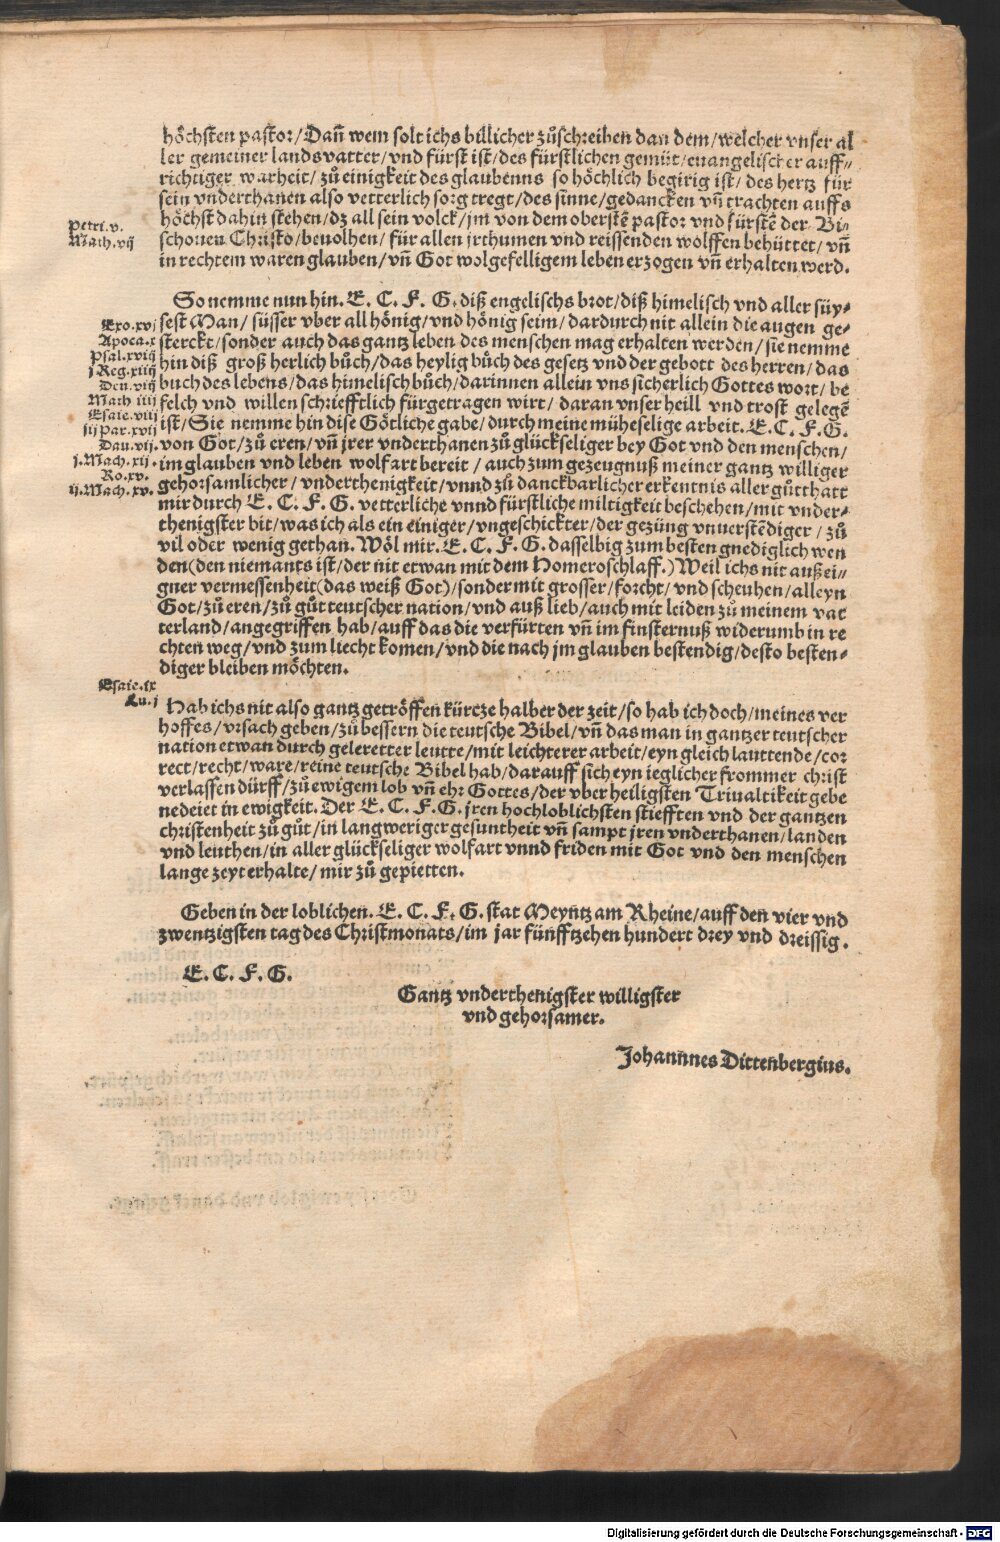 höchsten pastor/Dañ wem solt ichs billicher zůschreiben dan dem/welcher vnser al
ler gemeiner landsvatter/vnd fürst ist/des fürstlichen gemüt/euangelischer auff-
richtiger warheit/zů einigkeit des glaubenns so höchlich begirig ist/des hertz für
sein vnderthanen also vetterlich sorg tregt/des sinne/gedancken vñ trachten auffs
höchst dahin stehen/dz all sein volck/jm von dem oberstē pastor vnd fürstē der Bi-
schouen Christo/beuolhen/für allen jrthumen vnd reissenden wolffen behüttet/vñ
in rechtem waren glauben/vñ Got wolgefelligem leben erzogen vñ erhalten werd.
Petri.v.
Math.vij
So nemme nun hin.E.C.F.G.diß engelischs brot/diß himelisch vnd aller süy-
sest Man/süsser vber all hönig/vnd hönig seim/dardurch nit allein die augen ge-
sterckt/sonder auch das gantz leben des menschen mag erhalten werden/sie nemme
hin diß groß herlich bůch/das heylig bůch des gesetz vnd der gebott des herren/das
buch des lebens/das himelisch bůch/darinnen allein vns sicherlich Gottes wort/be
felch vnd willen schriefftlich fürgetragen wirt/daran vnser heill vnd trost gelegē
ist/Sie nemme hin dise Götliche gabe/durch meine müheselige arbeit.E.C.F.G.
von Got/zů eren/vñ jrer vnderthanen zů glückseliger bey Got vnd den menschen/
im glauben vnd leben wolfart bereit/auch zum gezeugnuß meiner gantz williger
gehorsamlicher/vnderthenigkeit/vnnd zů danckbarlicher erkentnis aller gůtthatt
mir durch E.C.F.G.vetterliche vnnd fürstliche miltigkeit beschehen/mit vnder-
thenigster bit/was ich als ein einiger/vngeschickter/der gezüng vnuerstēdiger/zů
vil oder wenig gethan.Wöl mir.E.C.F.G.dasselbig zum besten gnediglich wen
den(den niemants ist/der nit etwan mit dem Homero schlaff.)Weil ichs nit auß ei-
gner vermessenheit(das weiß Got)/sonder mit grosser/forcht/vnd scheuhen/alleyn
Got/zů eren/zů gůt teutscher nation/vnd auß lieb/auch mit leiden zů meinem vat
terland/angegriffen hab/auff das die verfürten vñ im finsternuß widerumb in re
chten weg/vnd zum liecht komen/vnd die nach jm glauben bestendig/desto besten-
diger bleiben möchten.
Exo.xvj
Apoca.x
Psal.xviij
j Reg.xiiij
Deu.viij
Math iiij
Esaie.viij
iij Par.xvij
Dau.vij.
j.Mach.xij.
Ro.xv.
ij.Mach.xv.
Hab ichs nit also gantz getröffen kürcze halber der zeit/so hab ich doch/meines ver
hoffes/vrsach geben/zů bessern die teutsche Bibel/vñ das man in gantzer teutscher
nation etwan durch geleretter leutte/mit leichterer arbeit/eyn gleich lauttende/cor
rect/recht/ware/reine teutsche Bibel hab/darauff sich eyn ieglicher frommer christ
verlassen dürff/zů ewigem lob vñ ehr Gottes/der vber heiligsten Triualtikeit gebe
nedeiet in ewigkeit.Der E.C.F.G.jren hochloblichsten stiefften vnd der gantzen
christenheit zů gůt/in langweriger gesuntheit vñ sampt jren vnderthanen/landen
vnd leuthen/in aller glückseliger wolfart vnnd friden mit Got vnd den menschen
lange zeyt erhalte/mir zů gepietten.
Esaie.ix
Lu.j
Geben in der loblichen.E.C.F.G.stat Meyntz am Rheine/auff den vier vnd
zwentzigsten tag des Christmonats/im jar fünfftzehen hundert drey vnd dreissig.
E.C.F.G.
Gantz vnderthenigster willigster
vnd gehorsamer.
Johannnes Dittenbergius.
Digitalisierung gefördert durch die Deutsche Forschungsgemeinschaft - DFG